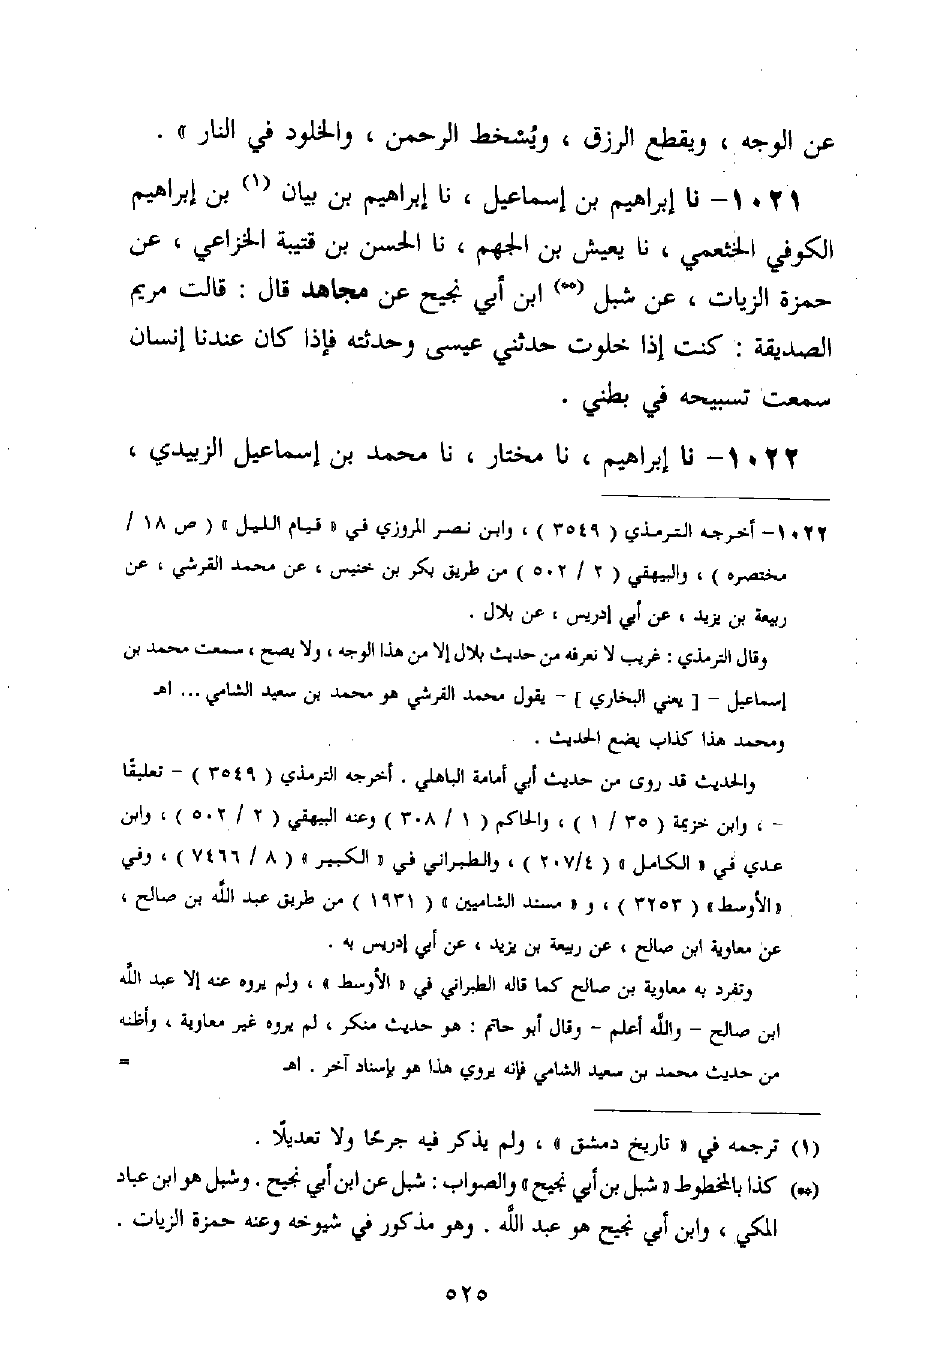 عن الوجه ، ويقطع الرزق ، ويُسْخط الرحمن ، والخلود في النار » .
١٠٢١- نا إبراهيم بن إسماعيل ، نا إبراهيم بن بيان (١) بن إبراهيم
الكوفي الخثعمي ، نا يعيش بن الجهم ، نا الحسن بن قتيبة الخزاعي ، عن
حمزة الزيات ، عن شبل (**) ابن أبي نجيح عن مجاهد قال : قالت مريم
الصديقة : كنت إذا خلوت حدثني عيسى وحدثته فإذا كان عندنا إنسان
سمعت تسبيحه في بطني .
١٠٢٢- نا إبراهيم ، نا مختار ، نا محمد بن إسماعيل الزبيدي ،
١٠٢٢- أخرجه الترمذي ( ٣٥٤٩ ) ، وابن نصر المروزي في « قيام الليل » ( ص ١٨ /
مختصره ) ، والبيهقي ( ٢ / ٥٠٢ ) من طريق بكر بن خنيس ، عن محمد القرشي ، عن
ربيعة بن يزيد ، عن أبي إدريس ، عن بلال .
وقال الترمذي : غريب لا نعرفه من حديث بلال إلا من هذا الوجه ، ولا يصح ، سمعت محمد بن
إسماعيل - [ يعني البخاري ] - يقول محمد القرشي هو محمد بن سعيد الشامي ... اهـ
ومحمد هذا كذاب يضع الحديث .
والحديث قد روى من حديث أبي أمامة الباهلي . أخرجه الترمذي ( ٣٥٤٩ ) - تعليقًا
- ، وابن خزيمة ( ٣٥ / ١ ) ، والحاكم ( ١ / ٣٠٨ ) وعنه البيهقي ( ٢ / ٥٠٢ ) ، وابن
عدي في « الكامل » ( ٢٠٧/٤ ) ، والطبراني في « الكبير » ( ٨ / ٧٤٦٦ ) ، وفي
« الأوسط » ( ٣٢٥٣ ) ، و « مسند الشاميين » ( ١٩٣١ ) من طريق عبد اللَّه بن صالح ،
عن معاوية ابن صالح ، عن ربيعة بن يزيد ، عن أبي إدريس به .
وتفرد به معاوية بن صالح كما قاله الطبراني في « الأوسط » ، ولم يروه عنه إلا عبد اللَّه
ابن صالح - واللَّه أعلم - وقال أبو حاتم : هو حديث منكر ، لم يروه غير معاوية ، وأظنه
من حديث محمد بن سعيد الشامي فإنه يروي هذا هو بإسناد آخر . اهـ =
(١) ترجمه في « تاريخ دمشق » ، ولم يذكر فيه جرحًا ولا تعديلًا .
(**) كذا بالمخطوط « شبل بن أبي نجيح » والصواب : شبل عن ابن أبي نجيح . وشبل هو ابن عباد
المكي ، وابن أبي نجيح هو عبد اللَّه . وهو مذكور في شيوخه وعنه حمزة الزيات .
٥٢٥